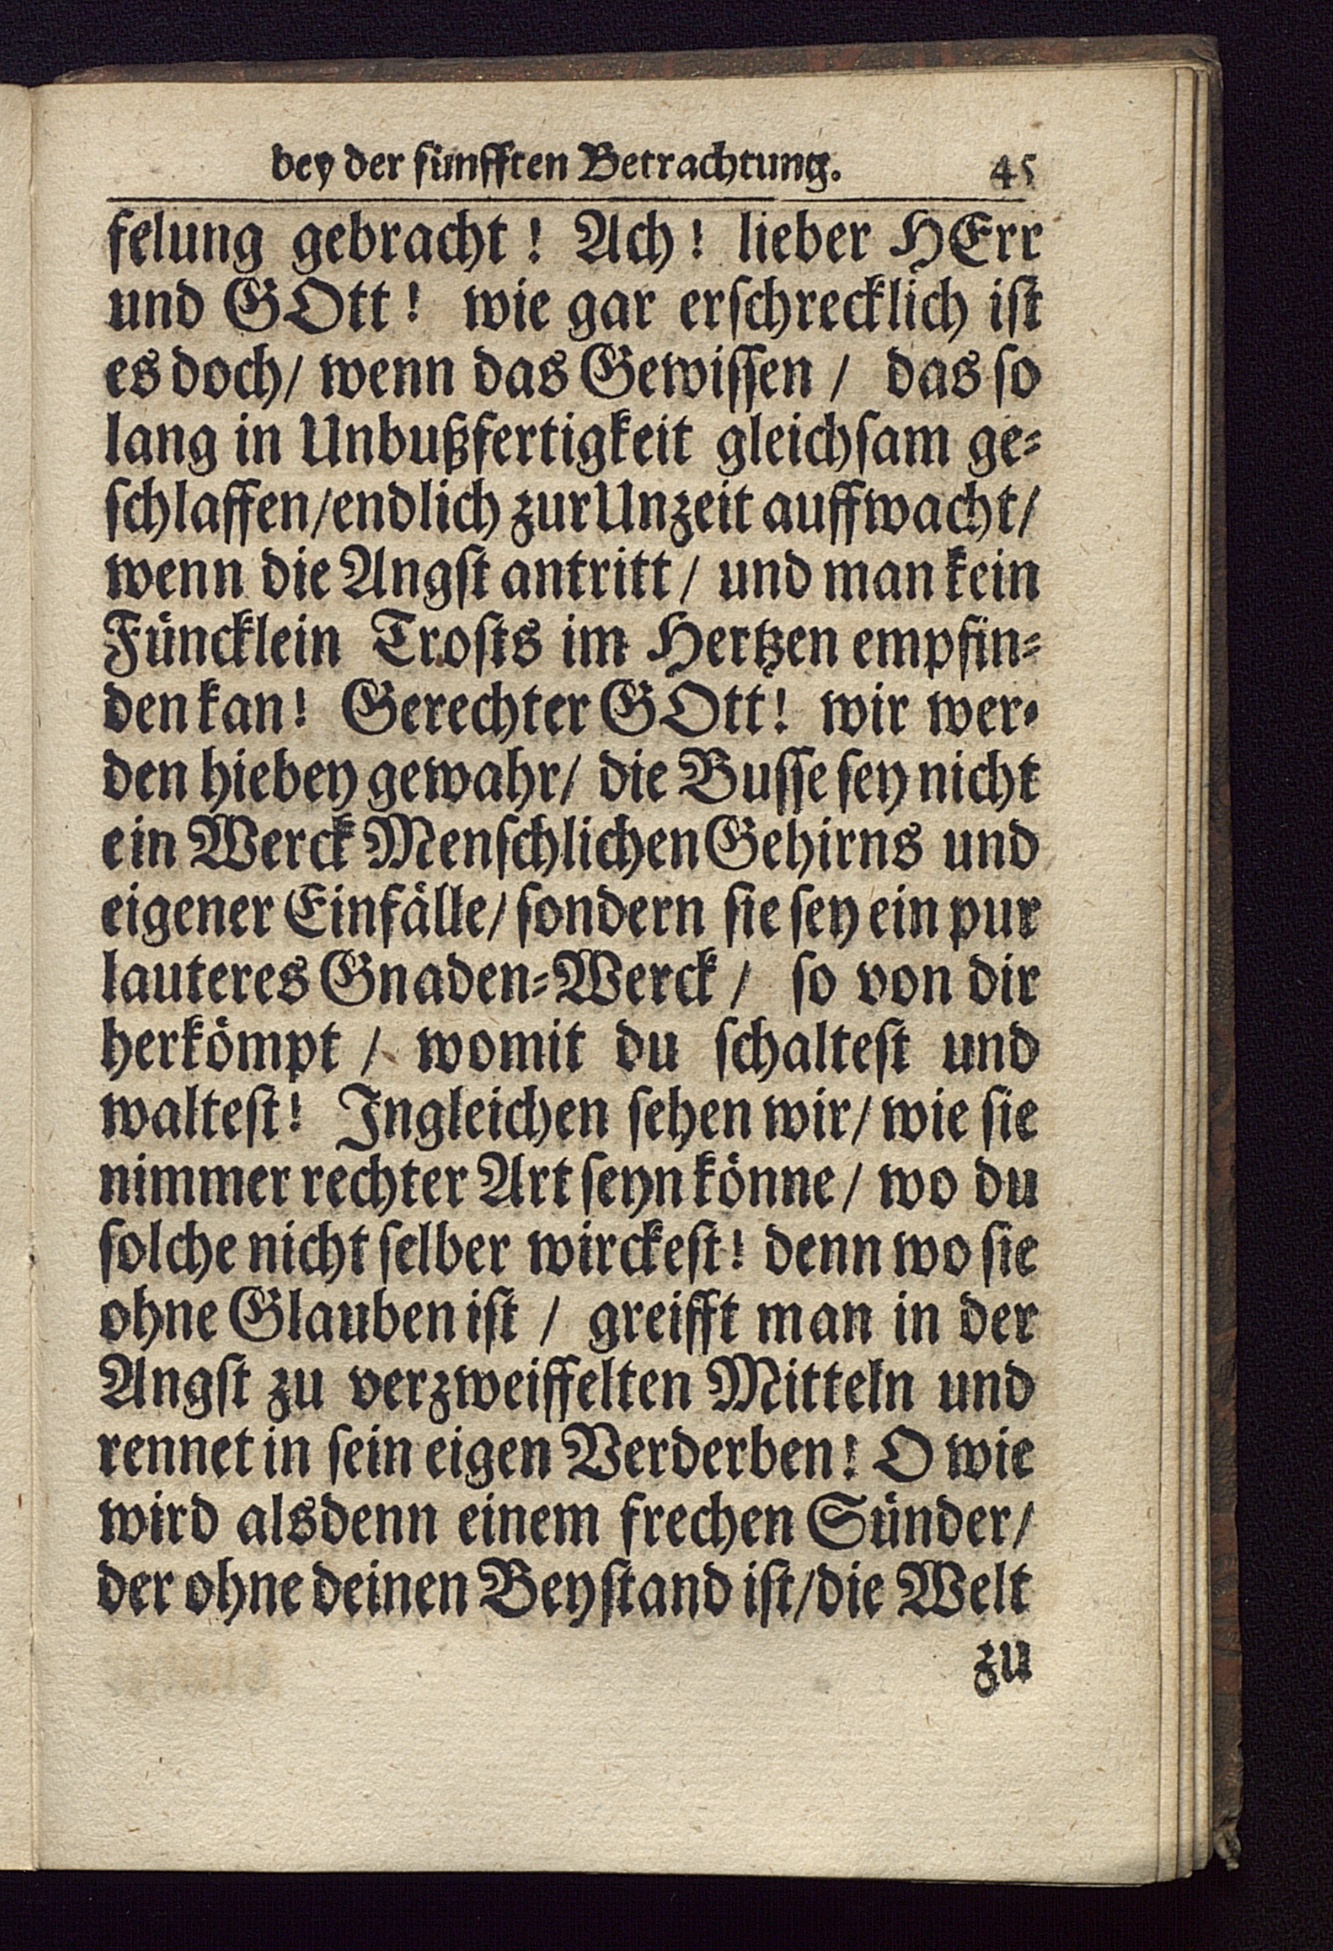 bey der fünfften Betrachtung. 45
felung gebracht! Ach! lieber HErr
und GOtt! wie gar erschrecklich ist
es doch/ wenn das Gewissen / das so
lang in Unbußfertigkeit gleichsam ge-
schlaffen/endlich zur Unzeit auffwacht/
wenn die Angst antritt / und man kein
Füncklein Trosts im Hertzen empfin-
den kan! Gerechter GOtt! wir wer-
den hiebey gewahr/ die Busse sey nicht
ein Werck Menschlichen Gehirns und
eigener Einfälle/ sondern sie sey ein pur
lauteres Gnaden-Werck / so von dir
herkömpt / womit du schaltest und
waltest! Ingleichen sehen wir/ wie sie
nimmer rechter Art seyn könne / wo du
solche nicht selber wirckest! denn wo sie
ohne Glauben ist / greifft man in der
Angst zu verzweiffelten Mitteln und
rennet in sein eigen Verderben! O wie
wird alsdenn einem frechen Sünder/
der ohne deinen Beystand ist/die Welt
zu